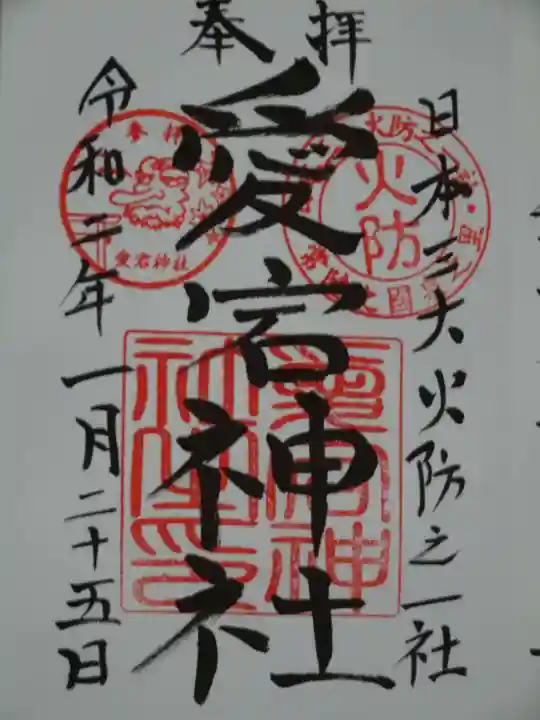 奉拝
日本三大火防之一社
愛宕神社
令和二年一月二十五日
火防
参拝
愛宕神社